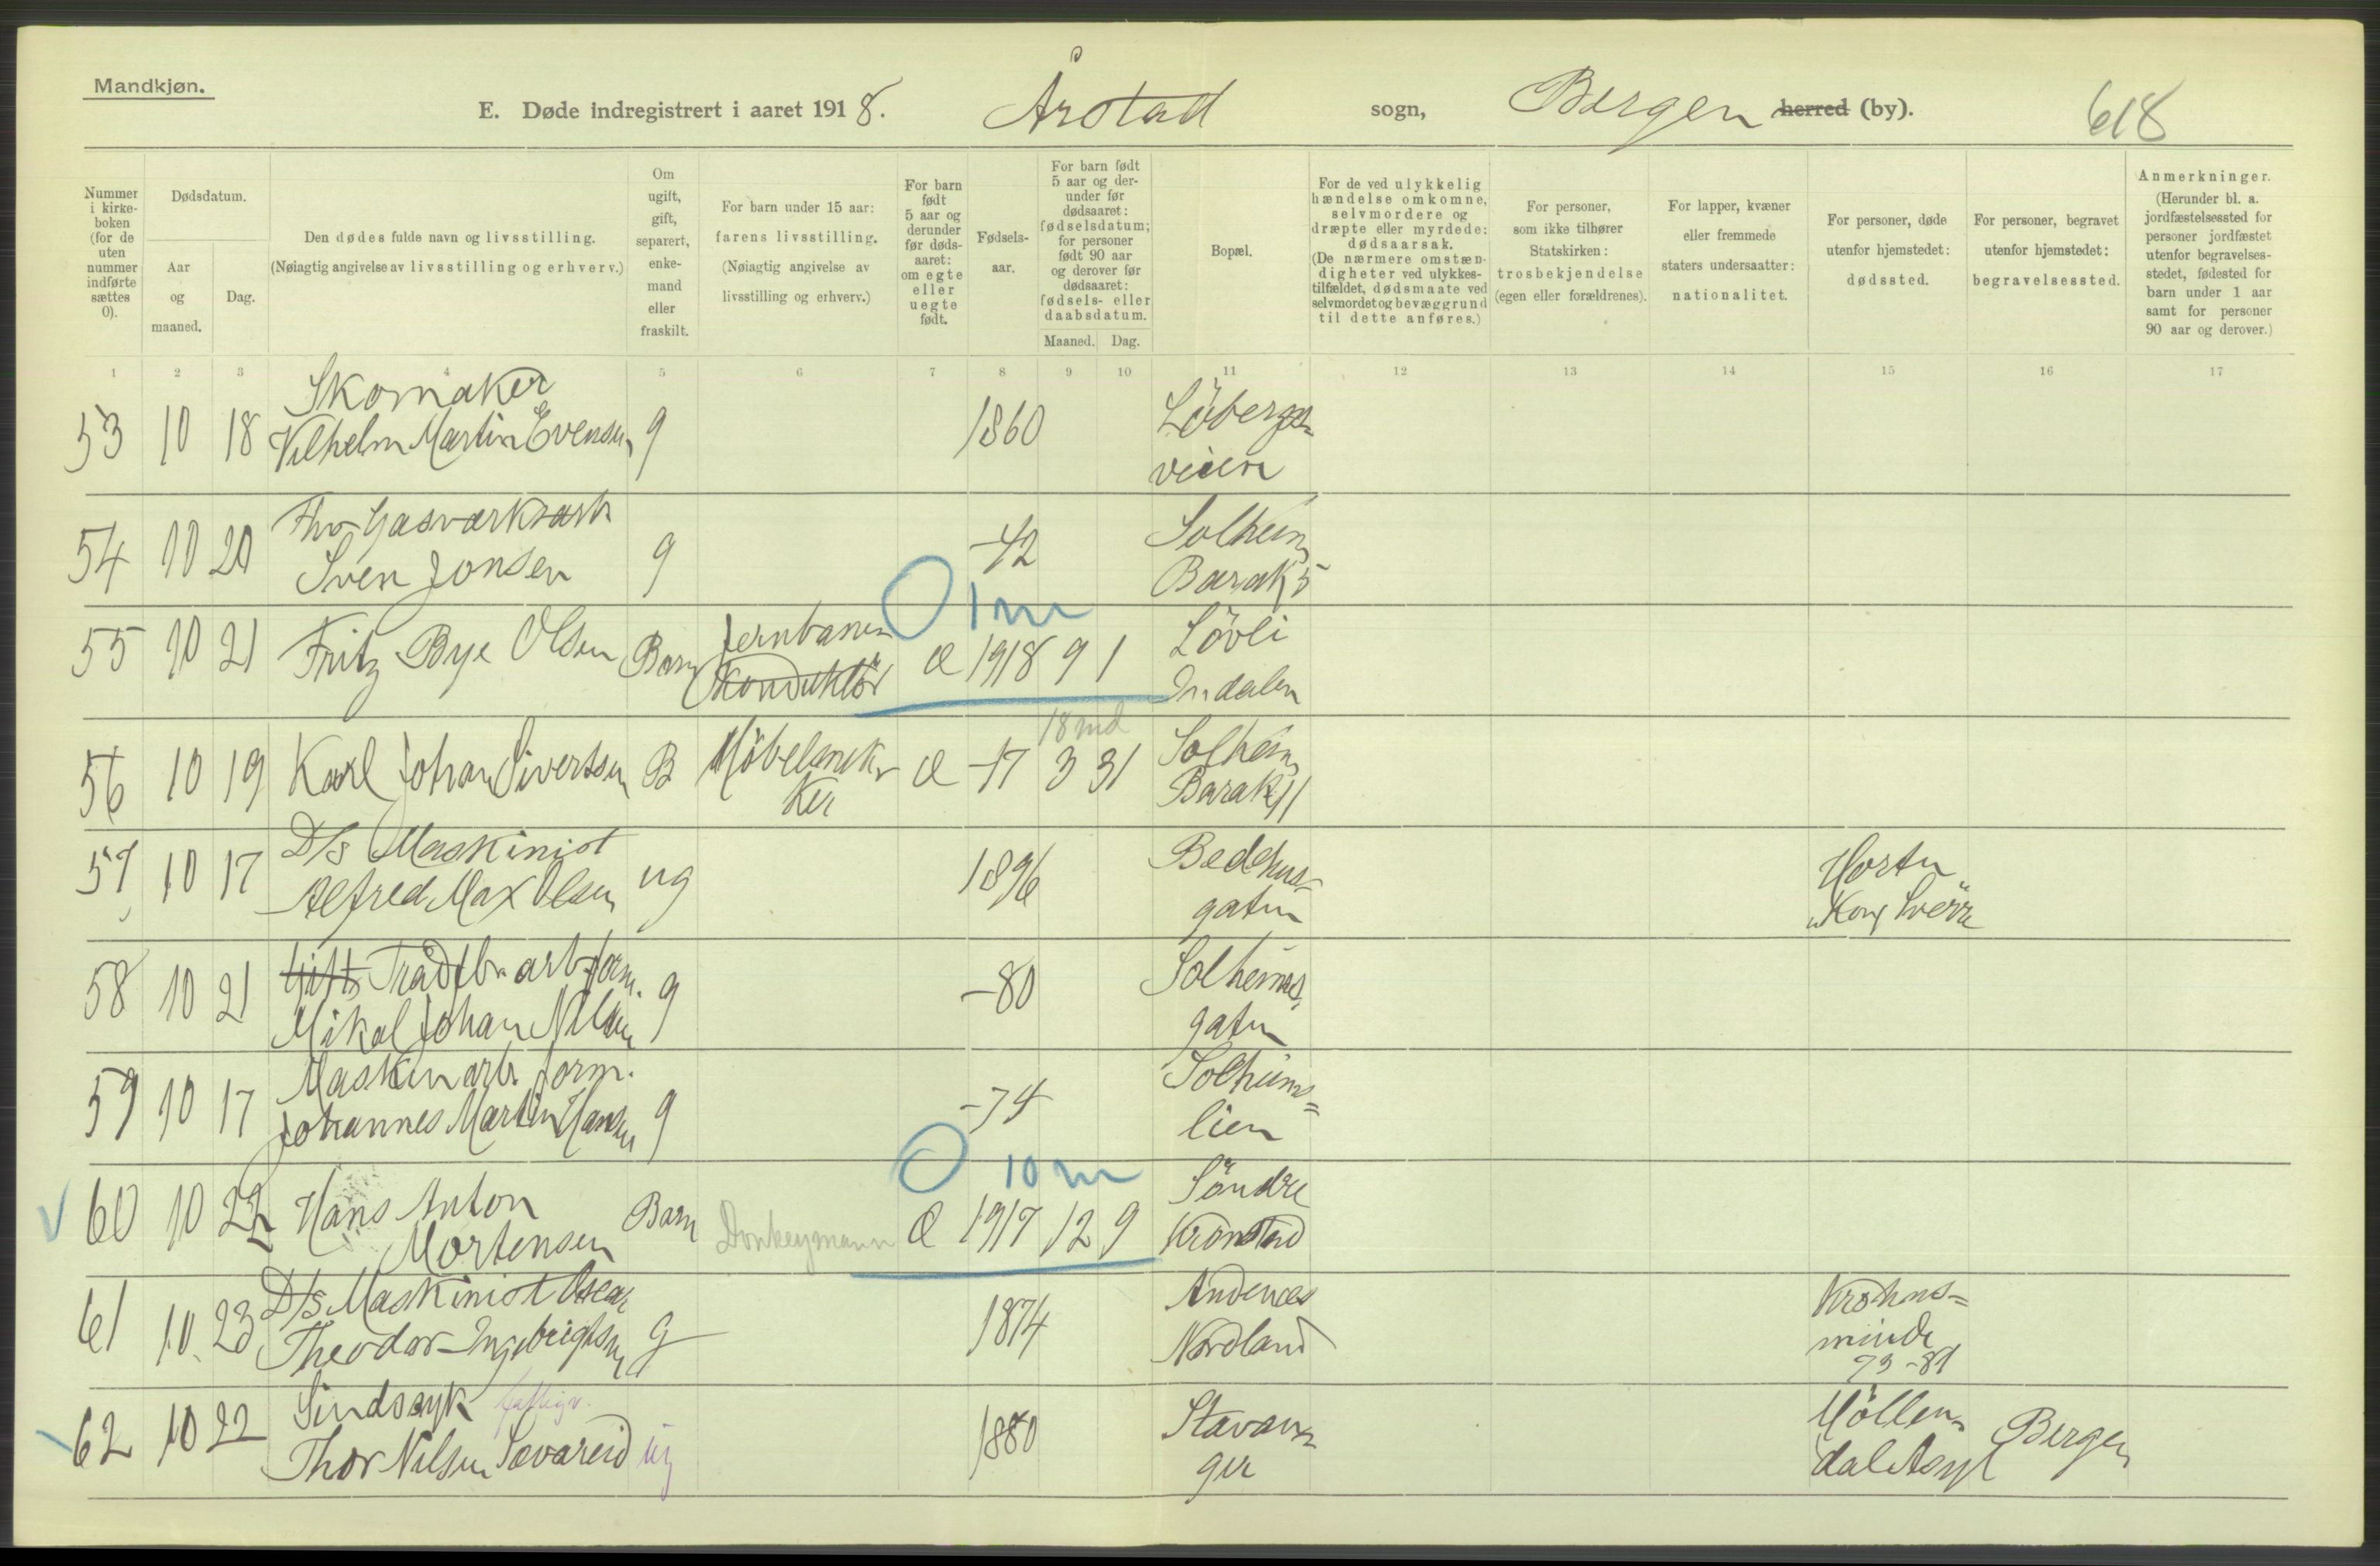 Mandkjøn.
E. Døde indregistrert i aaret 1918. Årstad sogn, Bergen herred (by). 618
Nummer i kirkeboken (for de uten nummer indførte sættes 0).
Dødsdatum.
Aar og maaned.
Dag.
Den dødes fulde navn og livsstilling.
(Nøiagtig angivelse av livsstilling og erhverv.)
Om ugift, gift, separert, enkemand eller fraskilt.
For barn under 15 aar: farens livsstilling.
(Nøiagtig angivelse av livsstilling og erhverv.)
For barn født 5 aar og derunder før dødsaaret: om egte eller uegte født.
Fødselsaar.
For barn født 5 aar og derunder før dødsaaret: fødselsdatum; for personer født 90 aar og derover før dødsaaret: fødsels- eller daabsdatum.
Maaned. Dag.
Bopæl.
For de ved ulykkelig hændelse omkomne, selvmordere og dræpte eller myrdede: dødsaarsak.
(De nærmere omstændigheter ved ulykkestilfældet, dødsmaate ved selvmordet og bevæggrund til dette anføres.)
For personer, som ikke tilhører Statskirken: trosbekjendelse (egen eller forældrenes).
For lapper, kvæner eller fremmede staters undersaatter: nationalitet.
For personer, døde utenfor hjemstedet: dødssted.
For personer, begravet utenfor hjemstedet: begravelsessted.
Anmerkninger.
(Herunder bl. a. jordfæstelsessted for personer jordfæstet utenfor begravelsesstedet, fødested for barn under 1 aar samt for personer 90 aar og derover.)
1 2 3 4 5 6 7 8 9 10 11 12 13 14 15 16 17
Skomaker
53 10 18 Vilhelm Martin Evensen g 1860 Löbergs-
veien
Gasværksarb
54 10 20 Sven Jonsen g -42 Solheim
Barak 5
O 1 m
55 10 21 Fritz Bye Olsen Barn Jernbane- Æ 1918 9 1 Lövli
Konduktör Indalen
18 md
56 10 19 Karl Johan Sivertsen B Möbelsnek- Æ -17 3 31 Solheim
ker Barak 11
D/S Maskinist
57 10 17 Alfred Max Olsen ug 1896 Bedehus- Horten
gaten "Kong Sverre"
Trådfbr. arb form.
58 10 21 Mikal Johan Nilsen g -80 Solheims
gaten
Maskinarb. form.
59 10 17 Johannes Martin Hansen g -74 Solheims=
lien
O 10 m
60 10 22 Hans Anton Barn Donkeymann Æ 1917 12 9 Söndre
Mortensen Kronstad
D/S Maskinist Oscar
61 10 23 Theodor Ingebrigtsen g 1874 Andenes Krohns=
Nordland minde
73-81
Sindssyk fattigv.
62 10 22 Thor Nilsen Sævareid ug 1880 Stavan- Möllen- Bergen
ger dal Asyl